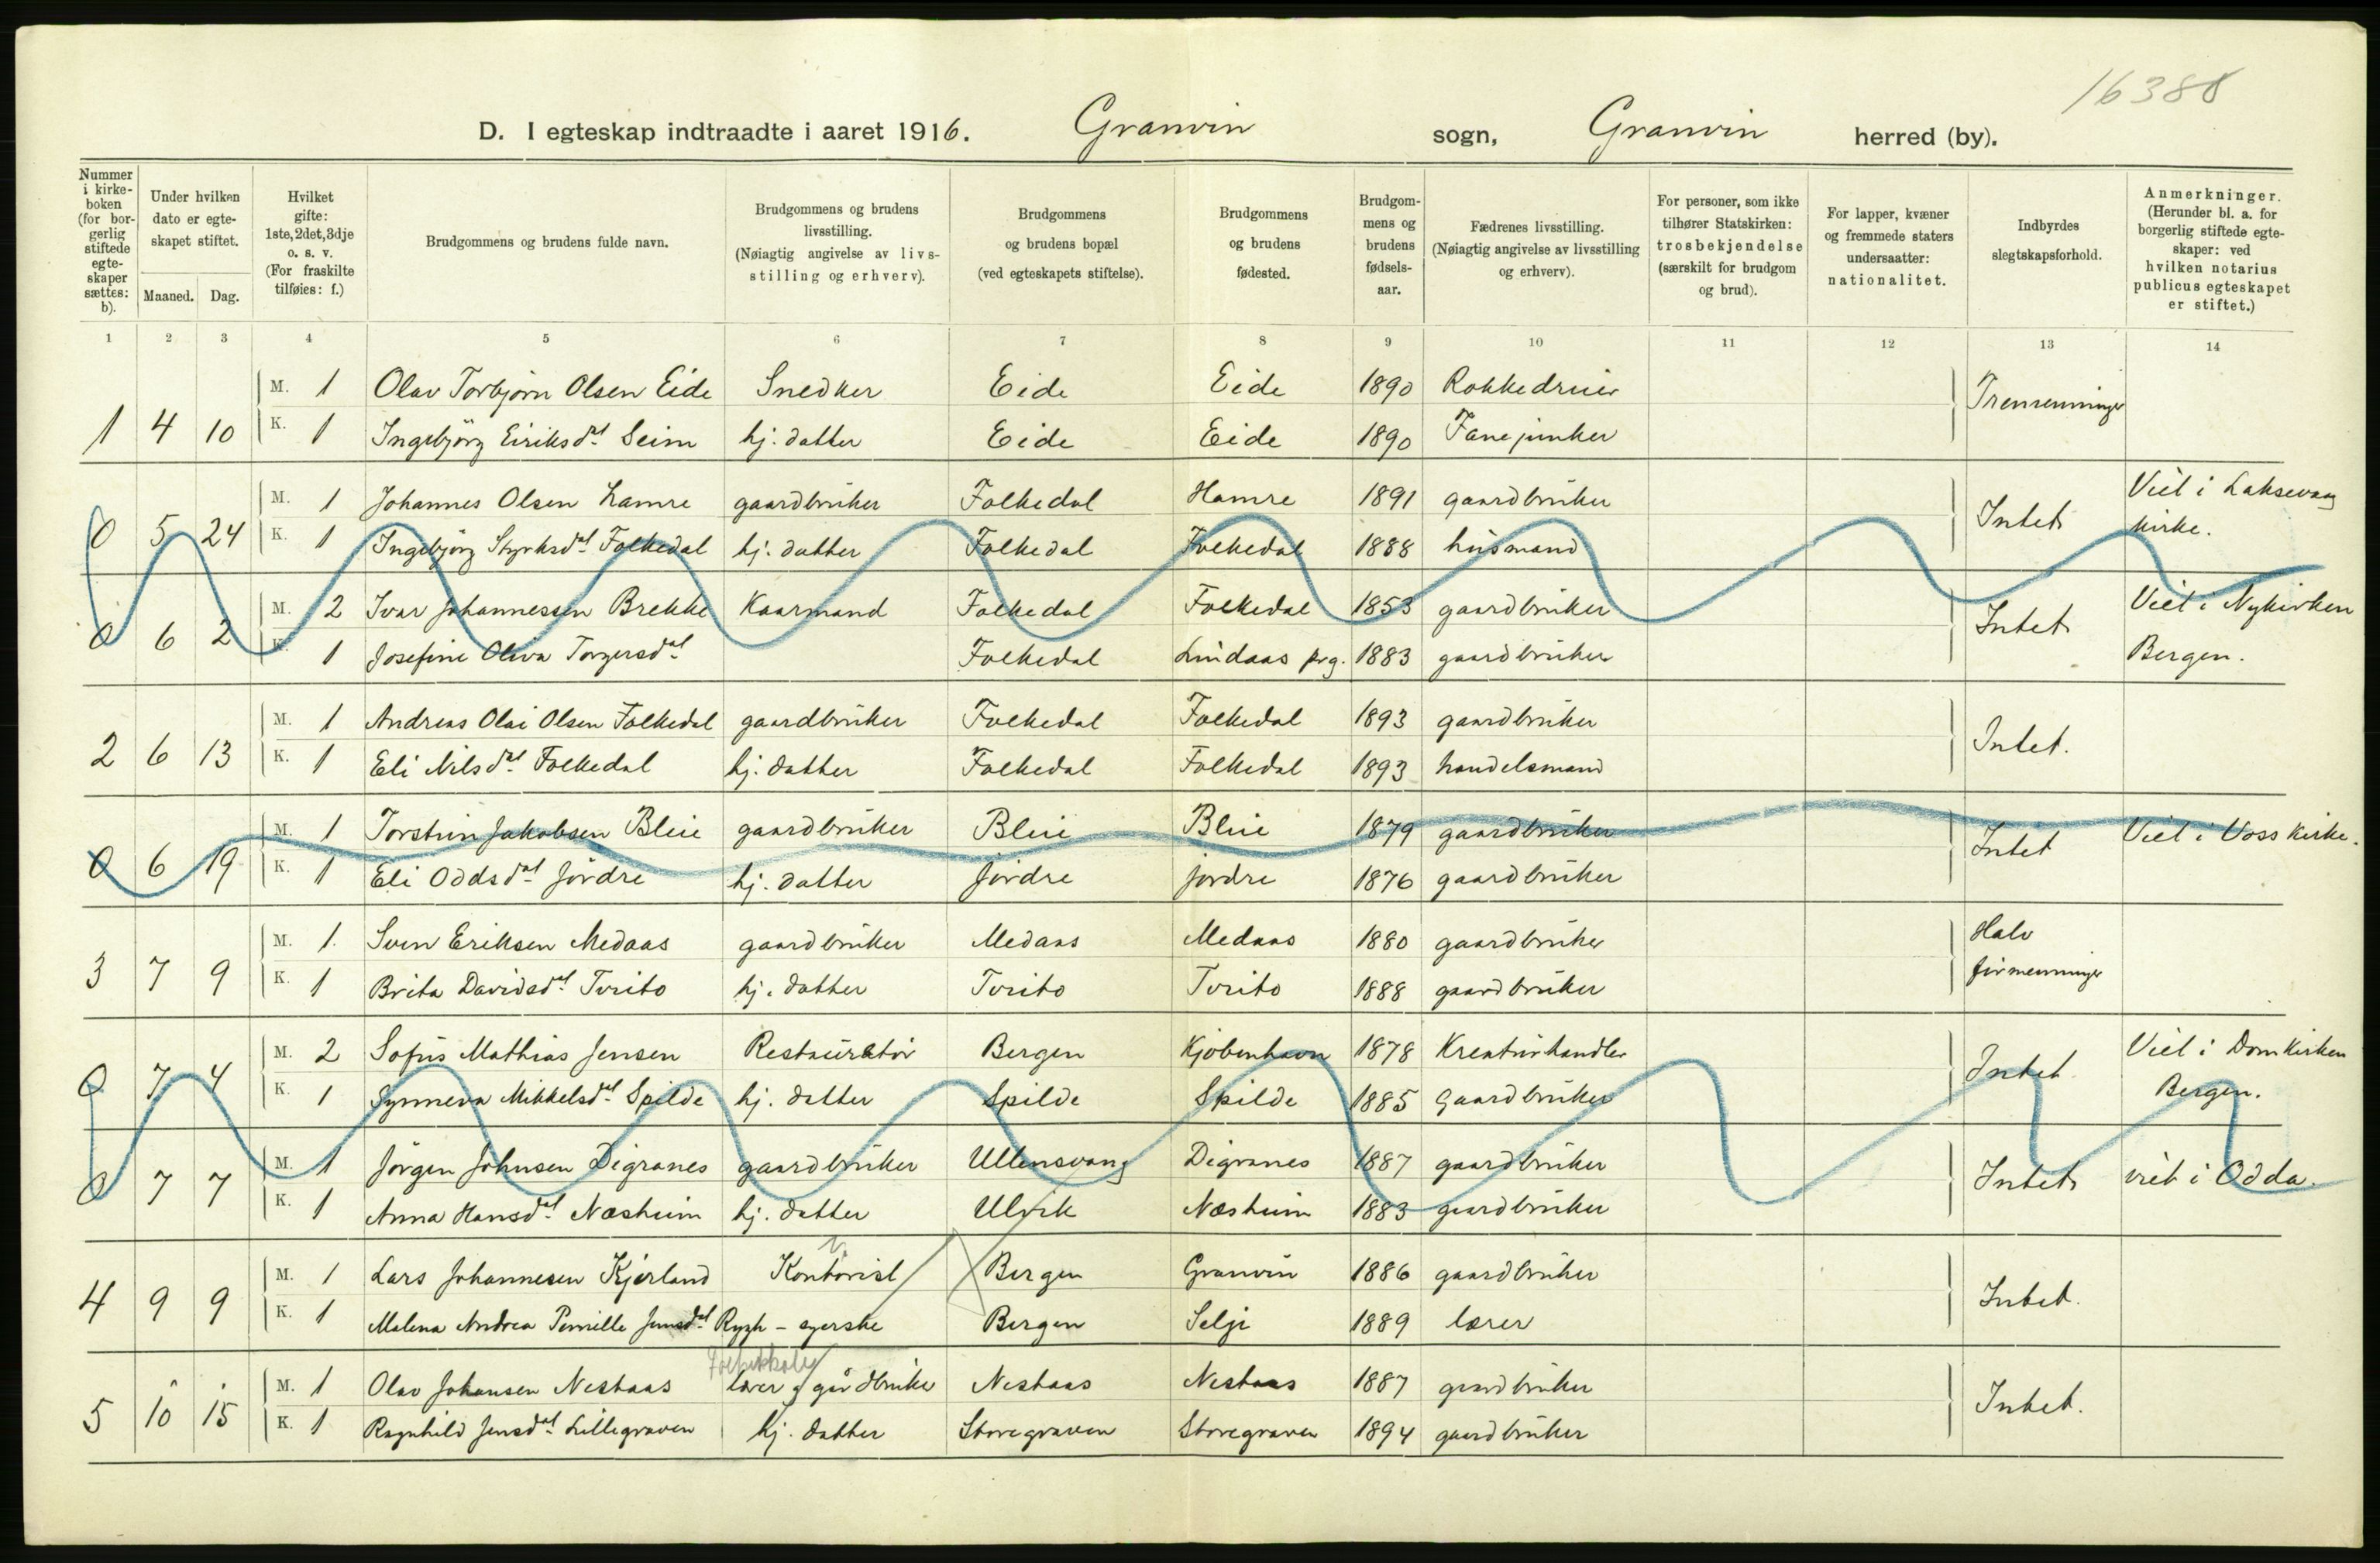 16388
D. I egteskap indtraadte i aaret 1916. Granvin sogn, Granvin herred (by).
Nummer i kirke-boken (for bor-gerlig stiftede egte-skaper sættes: b).
Under hvilken dato er egte-skapet stiftet.
Maaned. Dag.
Hvilket gifte: 1ste, 2det, 3dje o. s. v. (For fraskilte tilføies: f.)
Brudgommens og brudens fulde navn.
Brudgommens og brudens livsstilling. (Nøiagtig angivelse av livs-stilling og erhverv).
Brudgommens og brudens bopæl (ved egteskapets stiftelse).
Brudgommens og brudens fødested.
Brudgom-mens og brudens fødsels-aar.
Fædrenes livsstilling. (Nøiagtig angivelse av livsstilling og erhverv).
For personer, som ikke tilhører Statskirken: trosbekjendelse (særskilt for brudgom og brud).
For lapper, kvæner og fremmede staters undersaatter: nationalitet.
Indbyrdes slegtskapsforhold.
Anmerkninger. (Herunder bl. a. for borgerlig stiftede egte-skaper: ved hvilken notarius publicus egteskapet er stiftet.)
1 2 3 4 5 6 7 8 9 10 11 12 13 14
M. 1 Olav Torbjörn Olsen Eide Snedker Eide Eide 1890 Rokkedreier Tremenninger
1 4 10 K. 1 Ingebjörg Eiriksdat Seim hj. datter Eide Eide 1890 Fanejunker
M. 1 Johannes Olsen Hamre gaardbruker Folkedal Hamre 1891 gaardbruker Intet Viet i Laksevaag
0 5 24 K. 1 Ingebjörg Styrksdat Folkedal hj. datter Folkedal Folkedal 1888 husmand kirke.
M. 2 Ivar Johannessen Brekke Kaarmand Folkedal Folkedal 1853 gaardbruker Intet Viet i Nykirken
0 6 2 K. 1 Josefine Oliva Torgersdat Folkedal Lindaas prg. 1883 gaardbruker Bergen.
M. 1 Andreas Olai Olsen Folkedal gaardbruker Folkedal Folkedal 1893 gaardbruker Intet.
2 6 13 K. 1 Eli Nilsdat Folkedal hj. datter Folkedal Folkedal 1893 handelsmand
M. 1 Torstein Jakobsen Bleie gaardbruker Bleie Bleie 1879 gaardbruker Intet Viet i Voss kirke.
0 6 19 K. 1 Eli Oddsdat Jördre hj. datter Jördre Jördre 1876 gaardbruker
M. 1 Sven Eriksen Medaas gaardbruker Medaas Medaas 1880 gaardbruker Halv
3 7 9 K. 1 Brita Davidsdat Tveito hj. datter Tveito Tveito 1888 gaardbruker firmenninger
M. 2 Sofus Mathias Jensen Restauratör Bergen Kjöbenhavn 1878 Kreaturhandler Intet Viet i Domkirken
0 7 4 K. 1 Synneva Mikkelsdat Spilde hj. datter Spilde Spilde 1885 Gaardbruker Bergen.
M. 1 Jörgen Johnsen Digranes gaardbruker Ullensvang Digranes 1887 gaardbruker Intet viet i Odda.
0 7 7 K. 1 Anna Hansdat Næsheim hj. datter Ulvik Næsheim 1883 gaardbruker
M. 1 Lars Johannesen Kjerland Kontorist Bergen Granvin 1886 gaardbruker Intet.
4 9 9 K. 1 Malena Andrea Pernille Jensdat Rygh - syerske Bergen Selje 1889 lærer
M. 1 Olav Johansen Nestaas lærer g gårdbruker Nestaas Nestaas 1887 gaardbruker Intet.
5 10 15 K. 1 Ragnhild Jensdat Lillegraven hj. datter Storegraven Storegraven 1894 gaardbruker